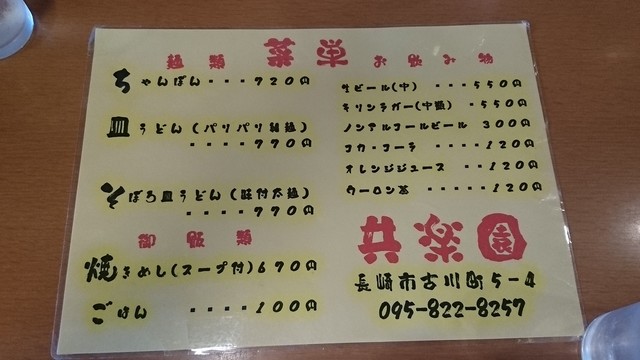 菜単
麺類
ちゃんぽん・・・・720円
皿うどん(パリパリ細麺)
・・・・・770円
そぼろ皿うどん(味付太麺)
・・・・・770円
御飯類
焼きめし(スープ付)670円
ごはん ・・・・・100円
お飲み物
生ビール(中) ・・・550円
キリンラガー(中瓶)・550円
ノンアルコールビール 300円
コカ・コーラ ・・・・120円
オレンジジュース ・・120円
ウーロン茶 ・・・・・120円
共楽園
長崎市古川町5-4
095-822-8257